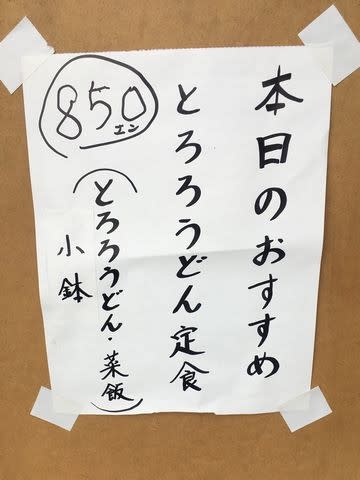 本日のおすすめ
とろろうどん定食
(とろろうどん・菜飯)
小鉢
850エン